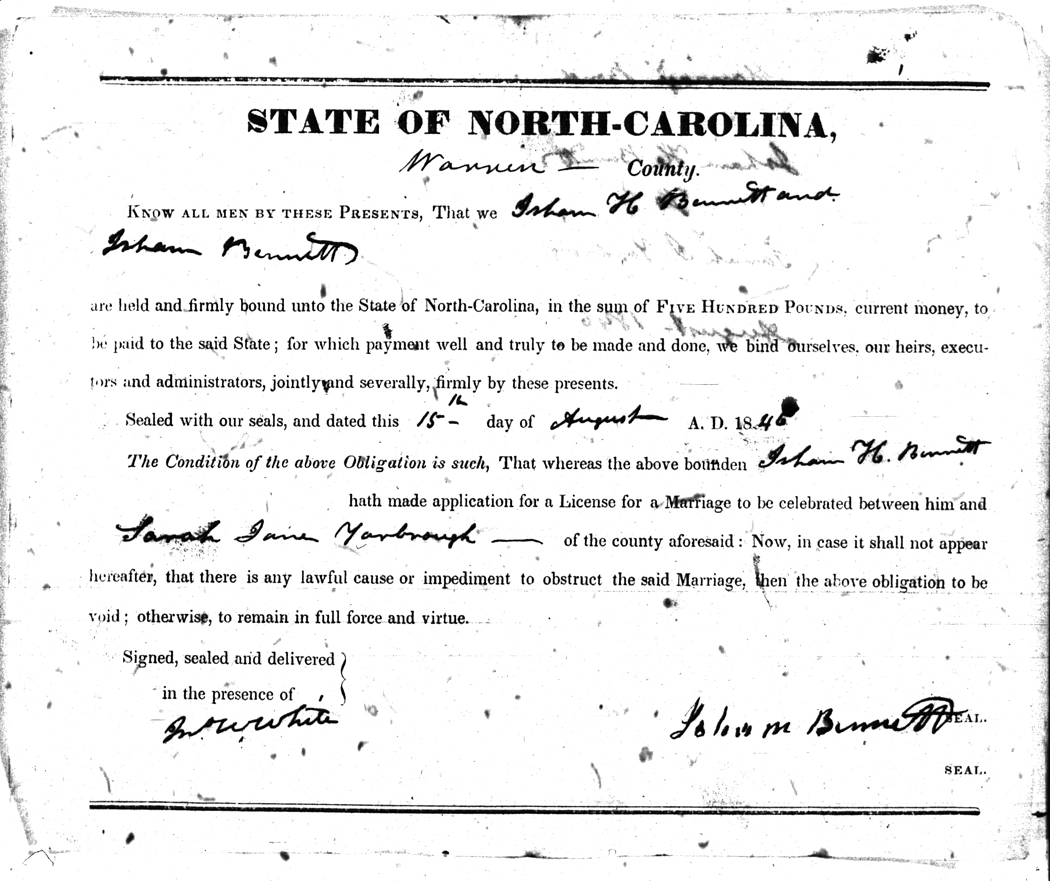 STATE OF NORTH-CAROLINA,
Warren — County.
KNOW ALL MEN BY THESE PRESENTS, That we Isham H Bennett and
Isham Bennett
are held and firmly bound unto the State of North-Carolina, in the sum of FIVE HUNDRED POUNDS, current money, to
be paid to the said State; for which payment well and truly to be made and done, we bind ourselves, our heirs, execu-
tors and administrators, jointly and severally, firmly by these presents.
Sealed with our seals, and dated this 15th day of August A. D. 1846
The Condition of the above Obligation is such, That whereas the above bounden Isham H. Bennett
hath made application for a License for a Marriage to be celebrated between him and
Sarah Jane Yarbrough — of the county aforesaid: Now, in case it shall not appear
hereafter, that there is any lawful cause or impediment to obstruct the said Marriage, then the above obligation to be
void; otherwise, to remain in full force and virtue.
Signed, sealed and delivered
in the presence of
Jno. W. White
Isham Bennett SEAL.
SEAL.